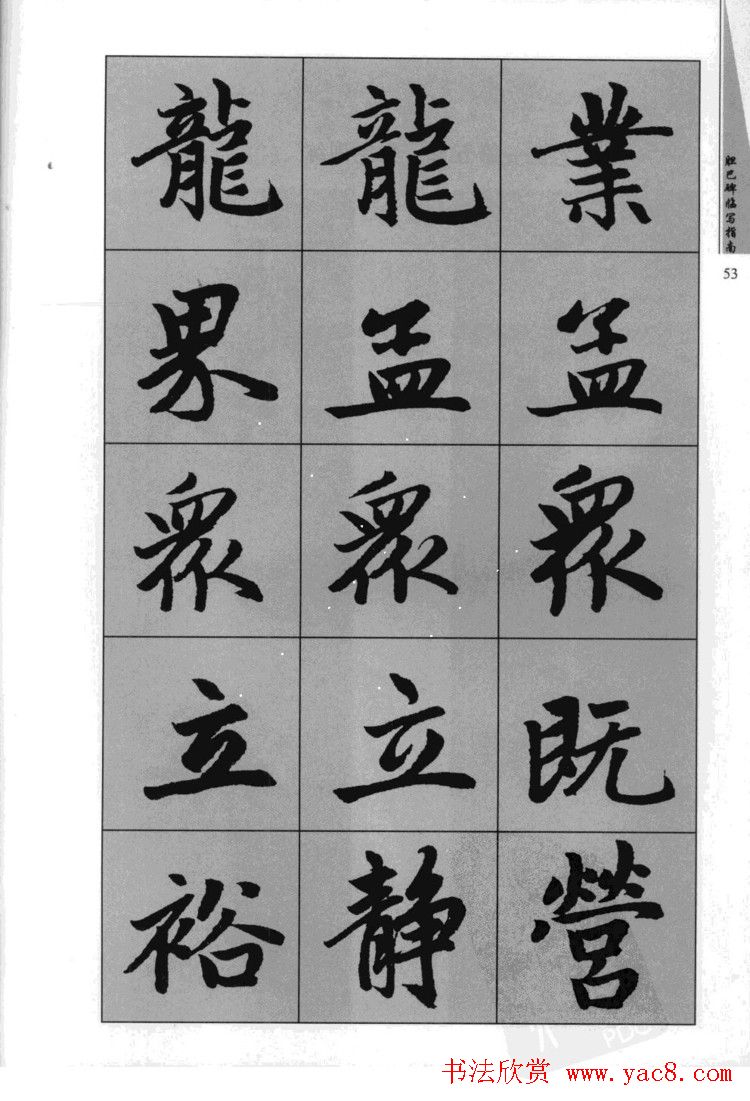 龍龍業
界孟孟
眾眾眾
立立既
裕静營
胆巴碑临写指南
53
书法欣赏 www.yac8.com